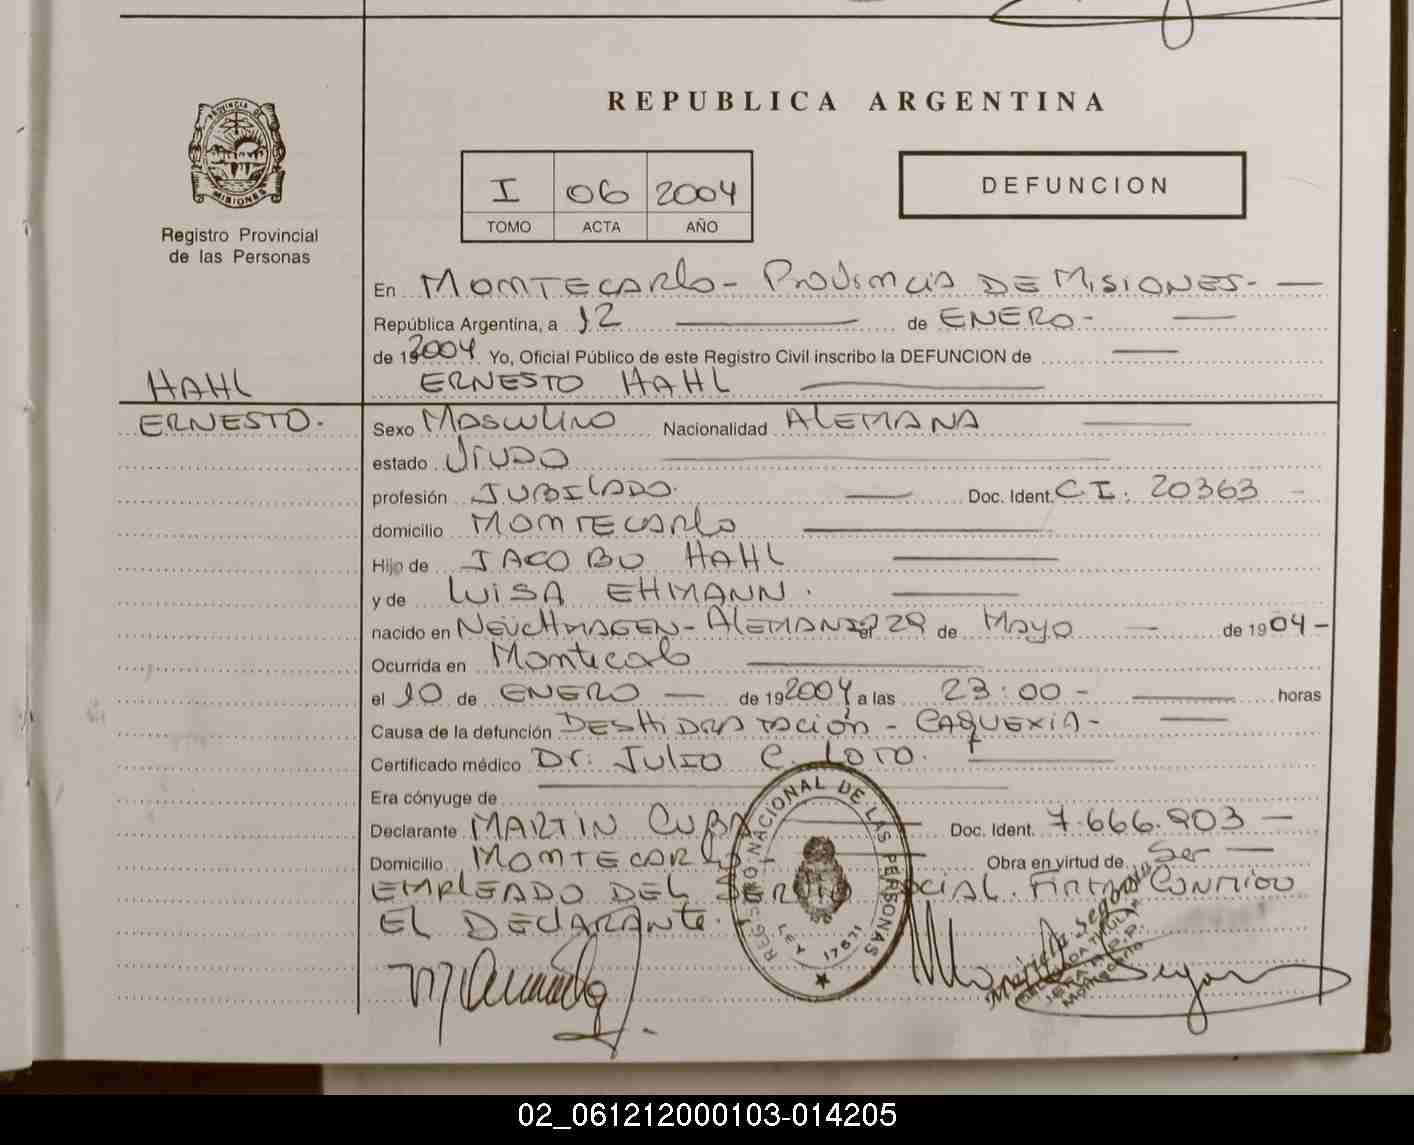 REPUBLICA ARGENTINA
PROVINCIA DE
MISIONES
Registro Provincial
de las Personas
I 06 2004
TOMO ACTA AÑO
DEFUNCION
En MONTECARLO - PROVINCIA DE MISIONES.-
República Argentina, a 12 de ENERO.-
de 192004 Yo, Oficial Público de este Registro Civil inscribo la DEFUNCION de
HAHL
ERNESTO HAHL
ERNESTO.
Sexo MASCULINO Nacionalidad ALEMANA
estado VIUDO
profesión JUBILADO. Doc. Ident. C.I. 20363 -
domicilio MONTECARLO
Hijo de JACOBO HAHL
y de LUISA EHMANN.
nacido en NEUCHMAGEN - ALEMANIA el 29 de MAYO - de 1904 -
Ocurrida en Montecarlo
el 10 de ENERO - de 192004 a las 23:00 - horas
Causa de la defunción DESHIDRATACIÓN - CAQUEXIA -
Certificado médico Dr. JULIO C. LORO.
Era cónyuge de
Declarante MARTIN CUBA Doc. Ident. 7.666.903 -
Domicilio MONTECARLO Obra en virtud de Ser -
EMPLEADO DEL SERVICIO SOCIAL. FIRMA CONMIGO
EL DECLARANTE.
REGISTRO NACIONAL DE LAS PERSONAS
LEY 17671
02_061212000103-014205